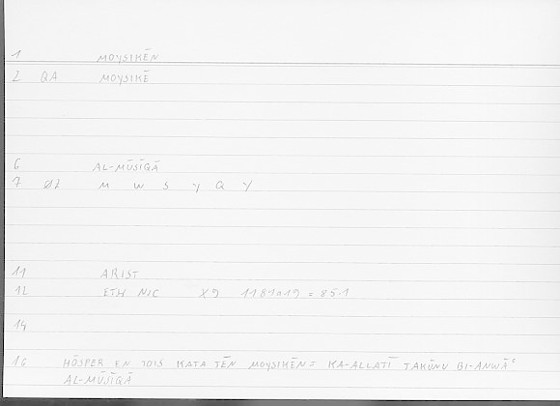 1 MOYSIKĒN
2 QA MOYSIKĒ
6 AL-MŪSĪQĀ
7 M W S Y Q Y
11 ARIST
12 ETH NIC X9 1181A19 = 85.1
14
16 HŌSPER EN TOIS KATA TĒN MOYSIKĒN = KA-ALLATĪ TAKŪNU BI-ANWĀʿ
AL-MŪSĪQĀ